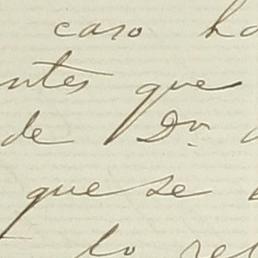 caso
que
de Dn.
que se
lo